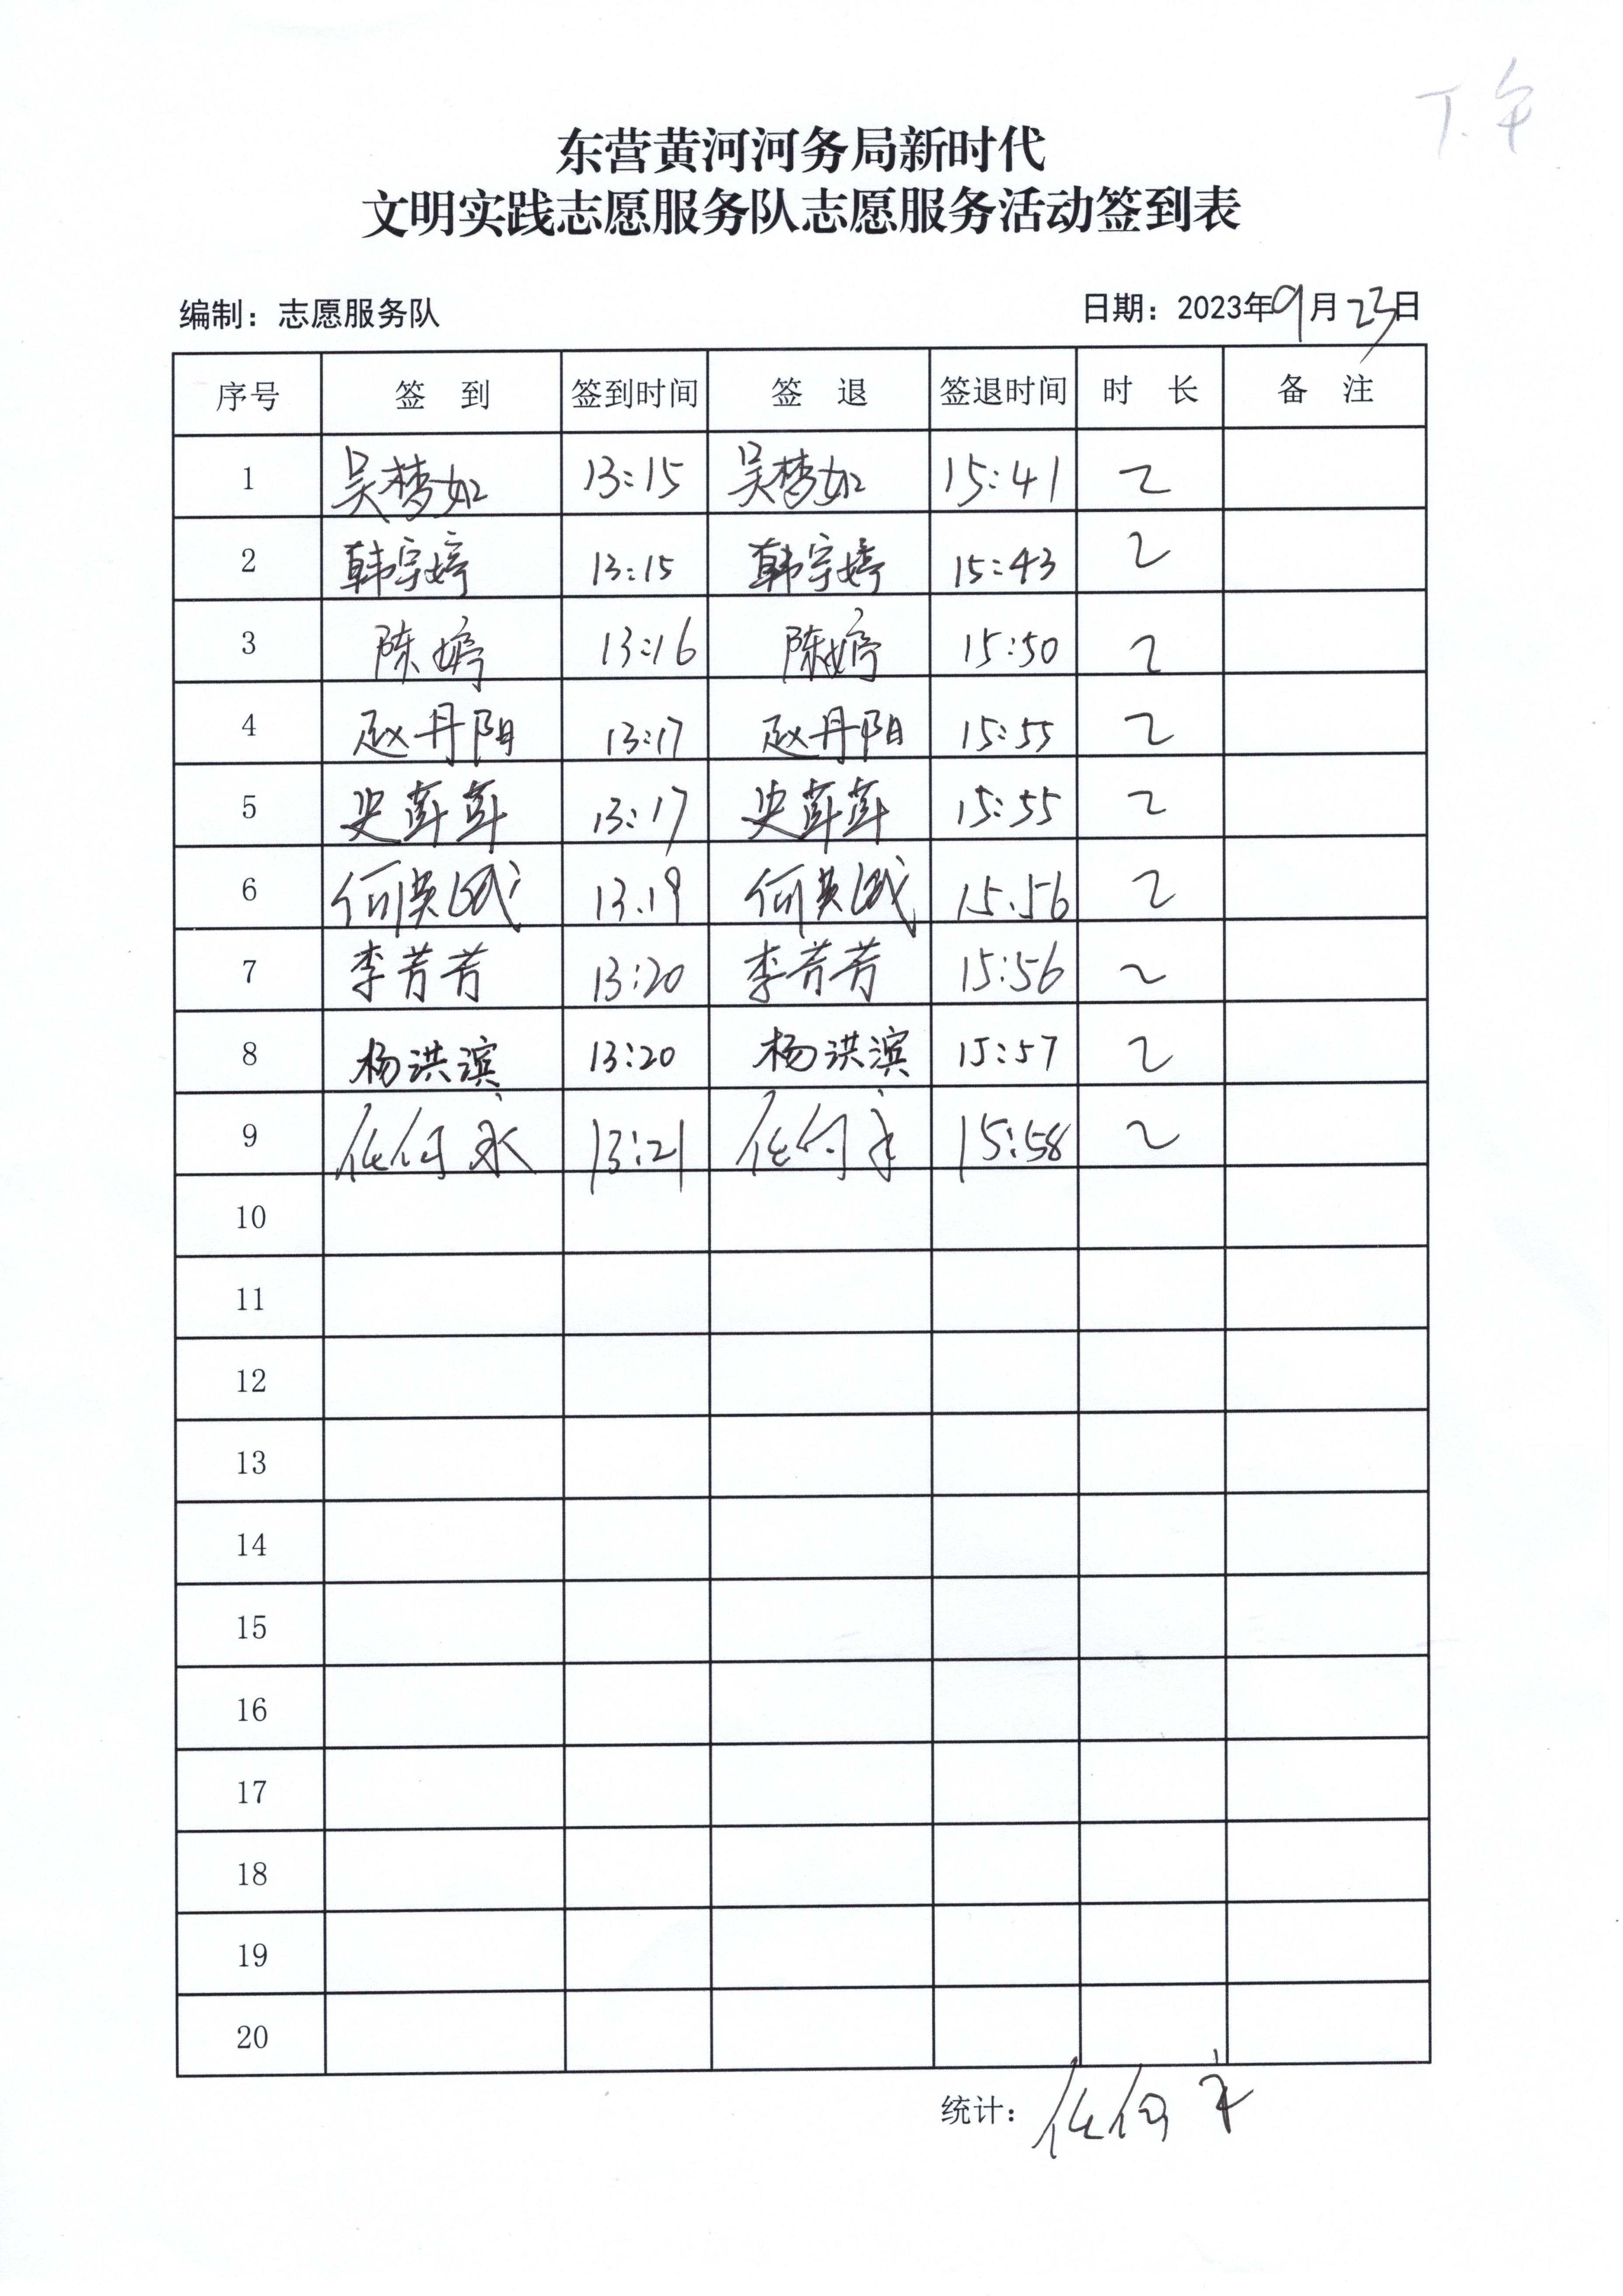 下午
东营黄河河务局新时代
文明实践志愿服务队志愿服务活动签到表
编制：志愿服务队 日期：2023年9月23日
序号 签 到 签到时间 签 退 签退时间 时 长 备 注
1 吴梦如 13:15 吴梦如 15:41 2
2 韩宗婷 13:15 韩宗婷 15:43 2
3 陈婷 13:16 陈婷 15:50 2
4 赵丹阳 13:17 赵丹阳 15:55 2
5 史 13:17 史 15:55 2
6 何英 13.19 何英 15.56 2
7 李芳芳 13:20 李芳芳 15:56 2
8 杨洪滨 13:20 杨洪滨 15:57 2
9 任何永 13:21 任何永 15:58 2
10
11
12
13
14
15
16
17
18
19
20
统计：任何永